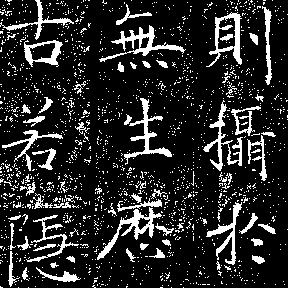 則攝於
無生歷
古若隱